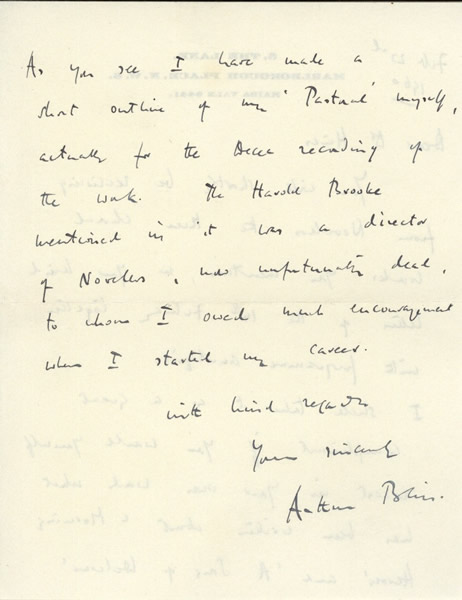 As you see I have made a
short outline of my 'Pastoral' myself,
actually for the Decca recording of
the work. The Harold Brooke
mentioned in it was a director
of Novellos, now unfortunately dead,
to whom I owed much encouragement
when I started my career.
with kind regards
Yours sincerely
Arthur Bliss.